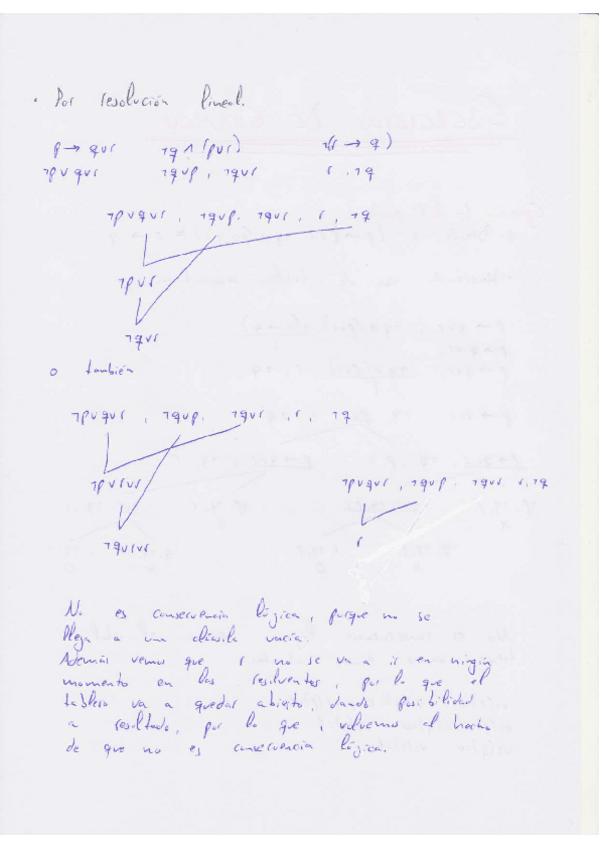 . Por resolución lineal.
p → qvr ¬q ∧ (pvr) ¬(r → q)
¬pvqvr ¬qvp, ¬qvr r, ¬q
¬pvqvr, ¬qvp. ¬qvr, r, ¬q
¬pvr
¬qvr
o también
¬pvqvr, ¬qvp. ¬qvr, r, ¬q
¬pvrvr
¬qvrvr
¬pvqvr, ¬qvp. ¬qvr r, ¬q
r
No es consecuencia lógica, porque no se
llega a una cláusula vacía.
Además vemos que r no se va a ir en ningún
momento en las resolventes, por lo que el
tablero va a quedar abierto, dando posibilidad
a resultado, por lo que, volvemos al hecho
de que no es consecuencia lógica.